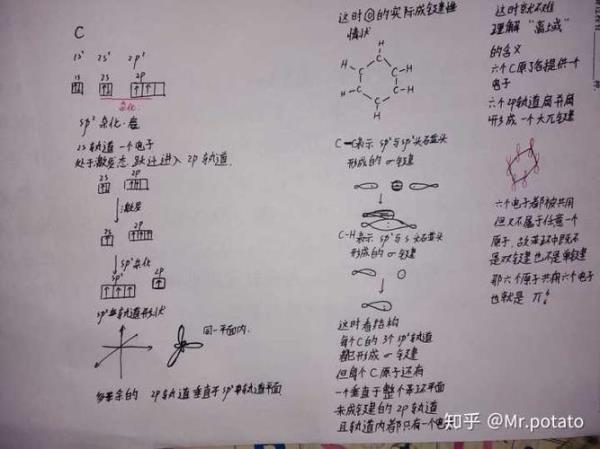 C
1s² 2s² 2p²
1s 2s 2p
杂化
sp² 杂化态
2s轨道一个电子
处于激发态,跃迁进入2p轨道.
2s 2p
激发
2s 2p
sp²杂化
sp² 2p
sp²轨道形状
同一平面内.
多余的2p轨道垂直于sp²轨道平面
这时的实际成键
情状
H H
C
H C C H
H C C H
C
H
C—C表示sp²与sp²头碰头
形成的σ键
C-H表示sp²与s头碰头
形成的σ键
这时看结构
每个C的3个sp²轨道
都已形成σ键
但每个C原子还有
一个垂直于整个苯环平面
未成键的2p轨道
且轨道内都只有一个电
这时就不难
理解“离域”
的含义
六个C原子各提供一个
电子
六个2p轨道肩并肩
形成一个大π键
六个电子都被共用
但又不属于任意一个
原子,故苯环中既不
是双键也不是单键
那六个原子共用六个电子
也就是 π₆⁶
知乎 @Mr.potato